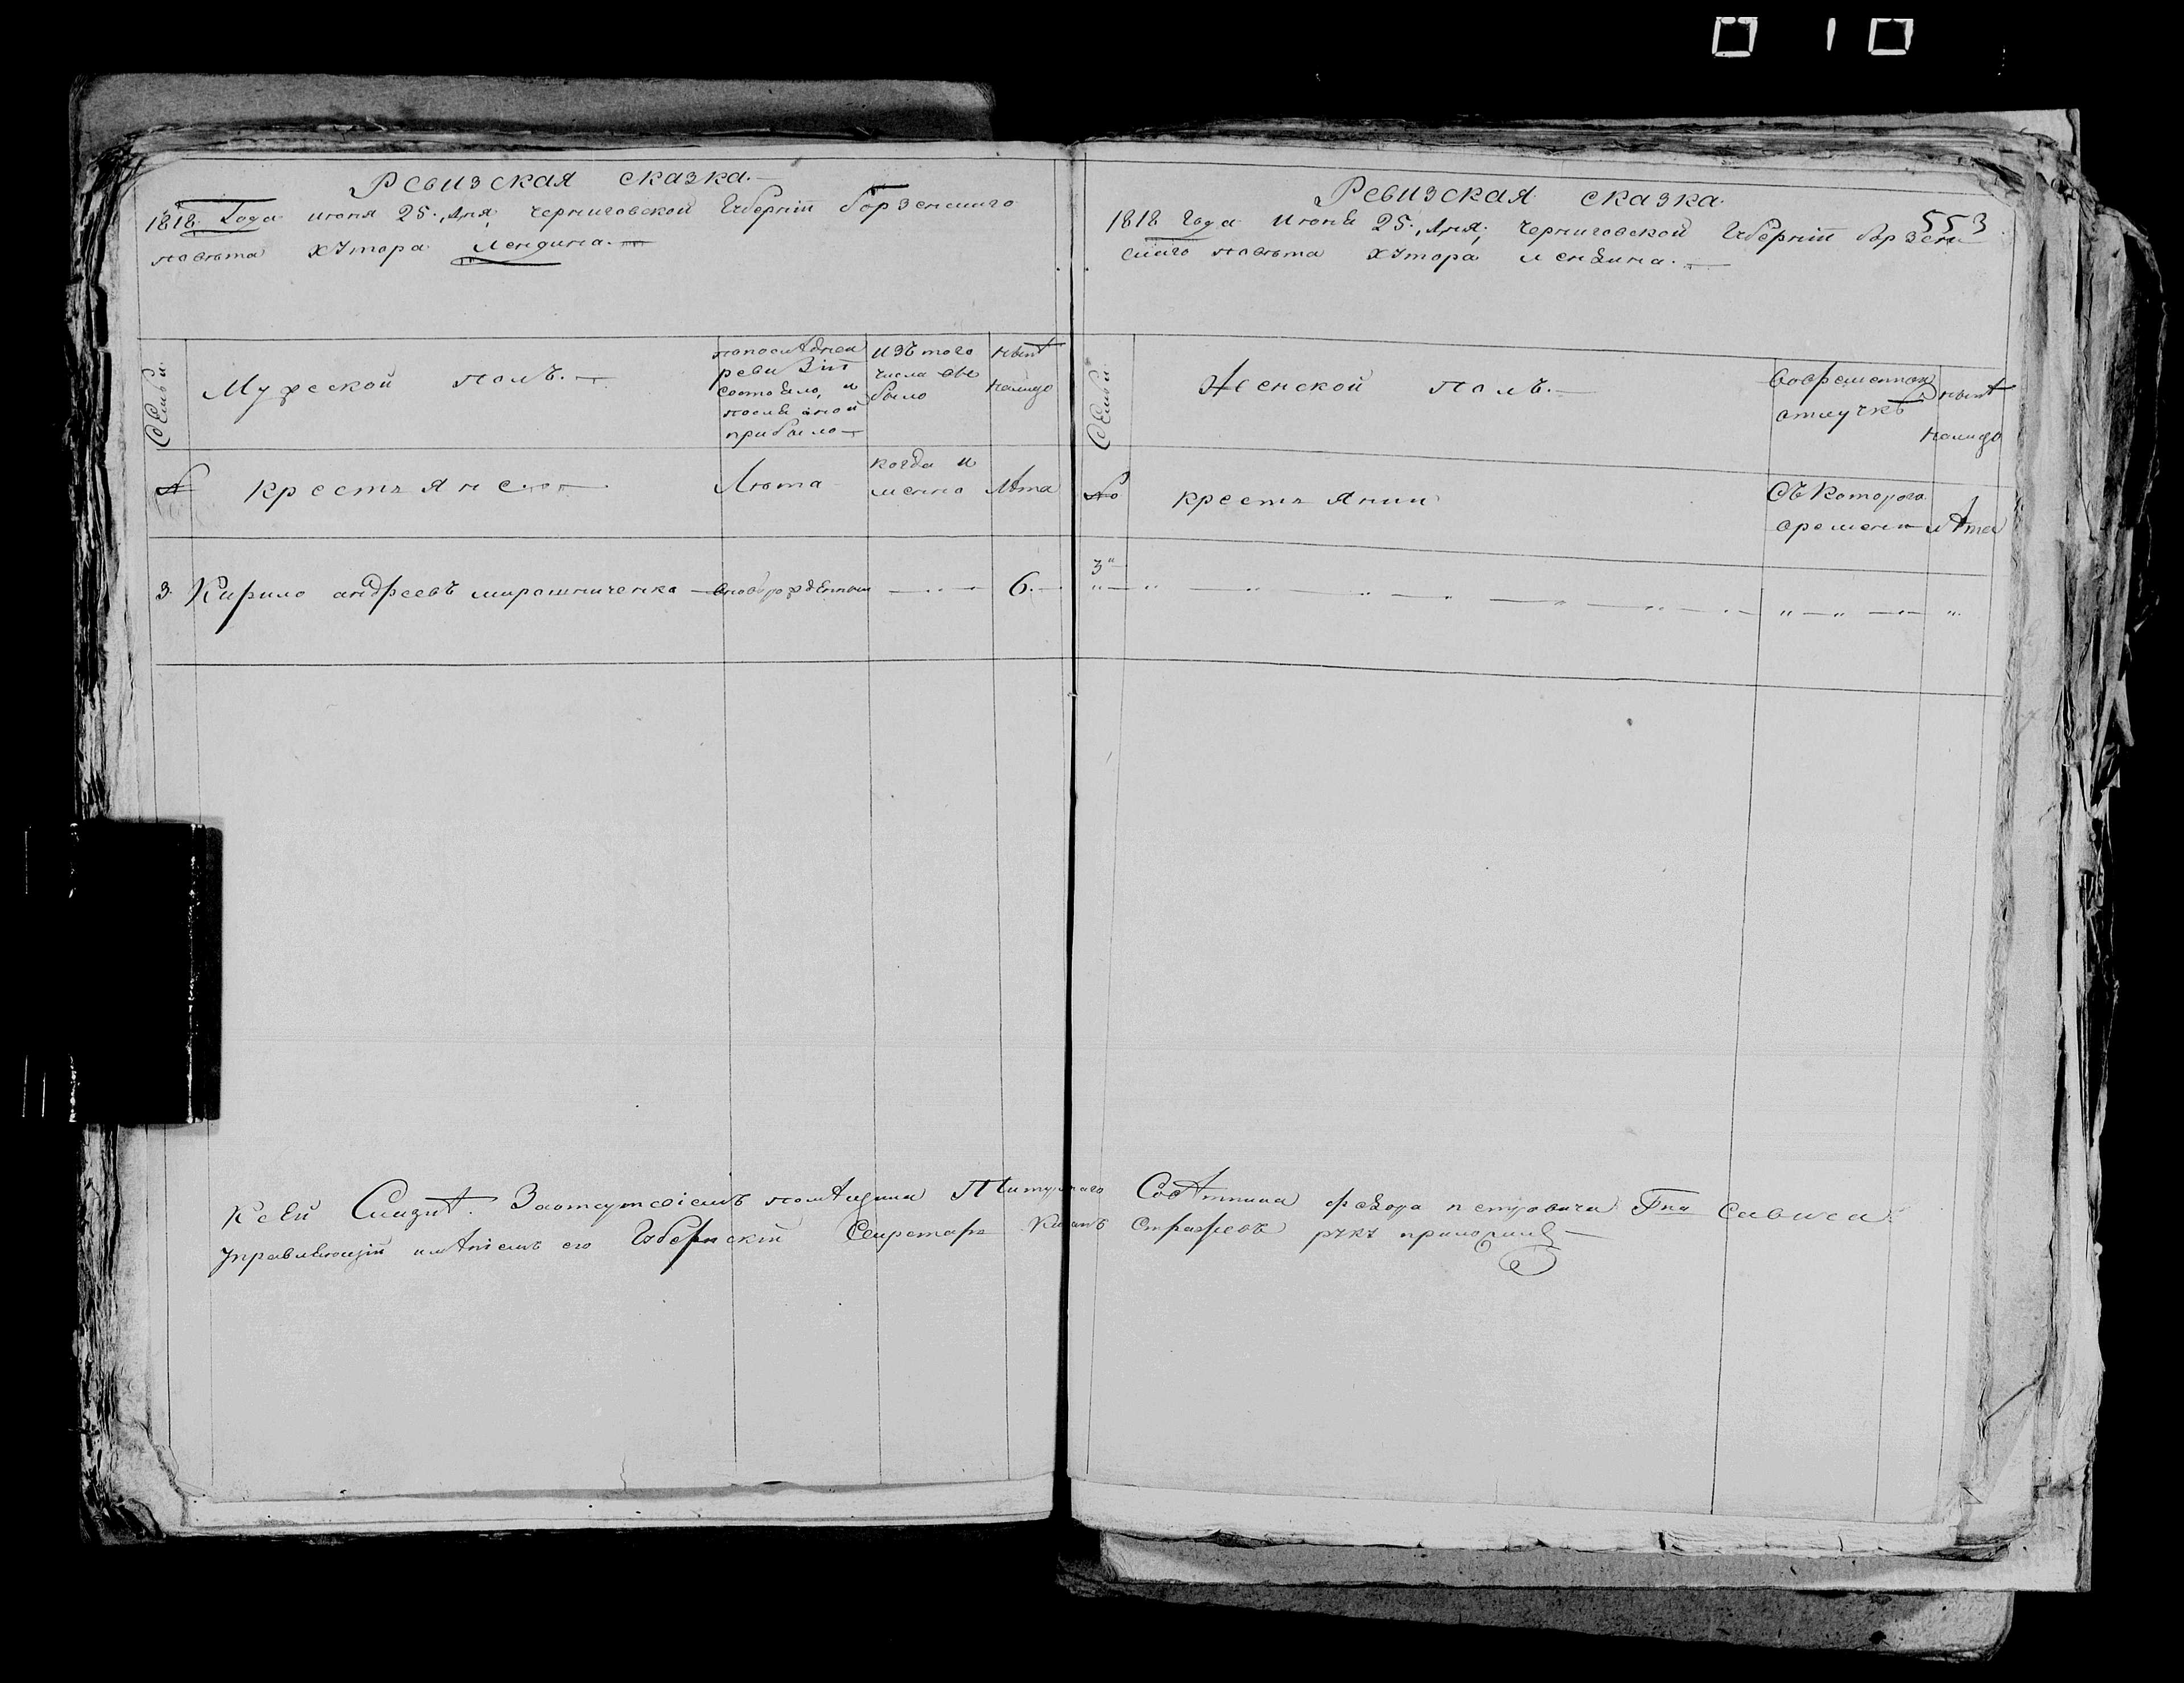 Ревизская сказка.
1818 Года июня 25. дня черниговской Губернiи борзенскаго
повѣта хутора
Семьи.
Мужеской полъ.
попоследней
ревизiи
состояло, и
после оной
прибыло
изъ того
числа выбыло
нынѣ
налицо
№
крестьяне
Лѣта
когда и
менно
лѣта
3. Кирило андреевъ мирошниченко — вновьрожденный 6.
553
Ревизская сказка.
1818 Года июня 25. дня, черниговской Губернiи борзен
скаго повѣта хутора
Семьи
Женской полъ.
вовременной
отлучкѣ
нынѣ
налицо
№
крестьянки
Съ которого
времени
лѣта
3
К сей Сказкѣ. Заотсутсвiемъ помѣщика Титулнаго Совѣтника федора петровича Сына
управляющiй имѣнiемъ его Губернскiй Секретарь руку приложилъ